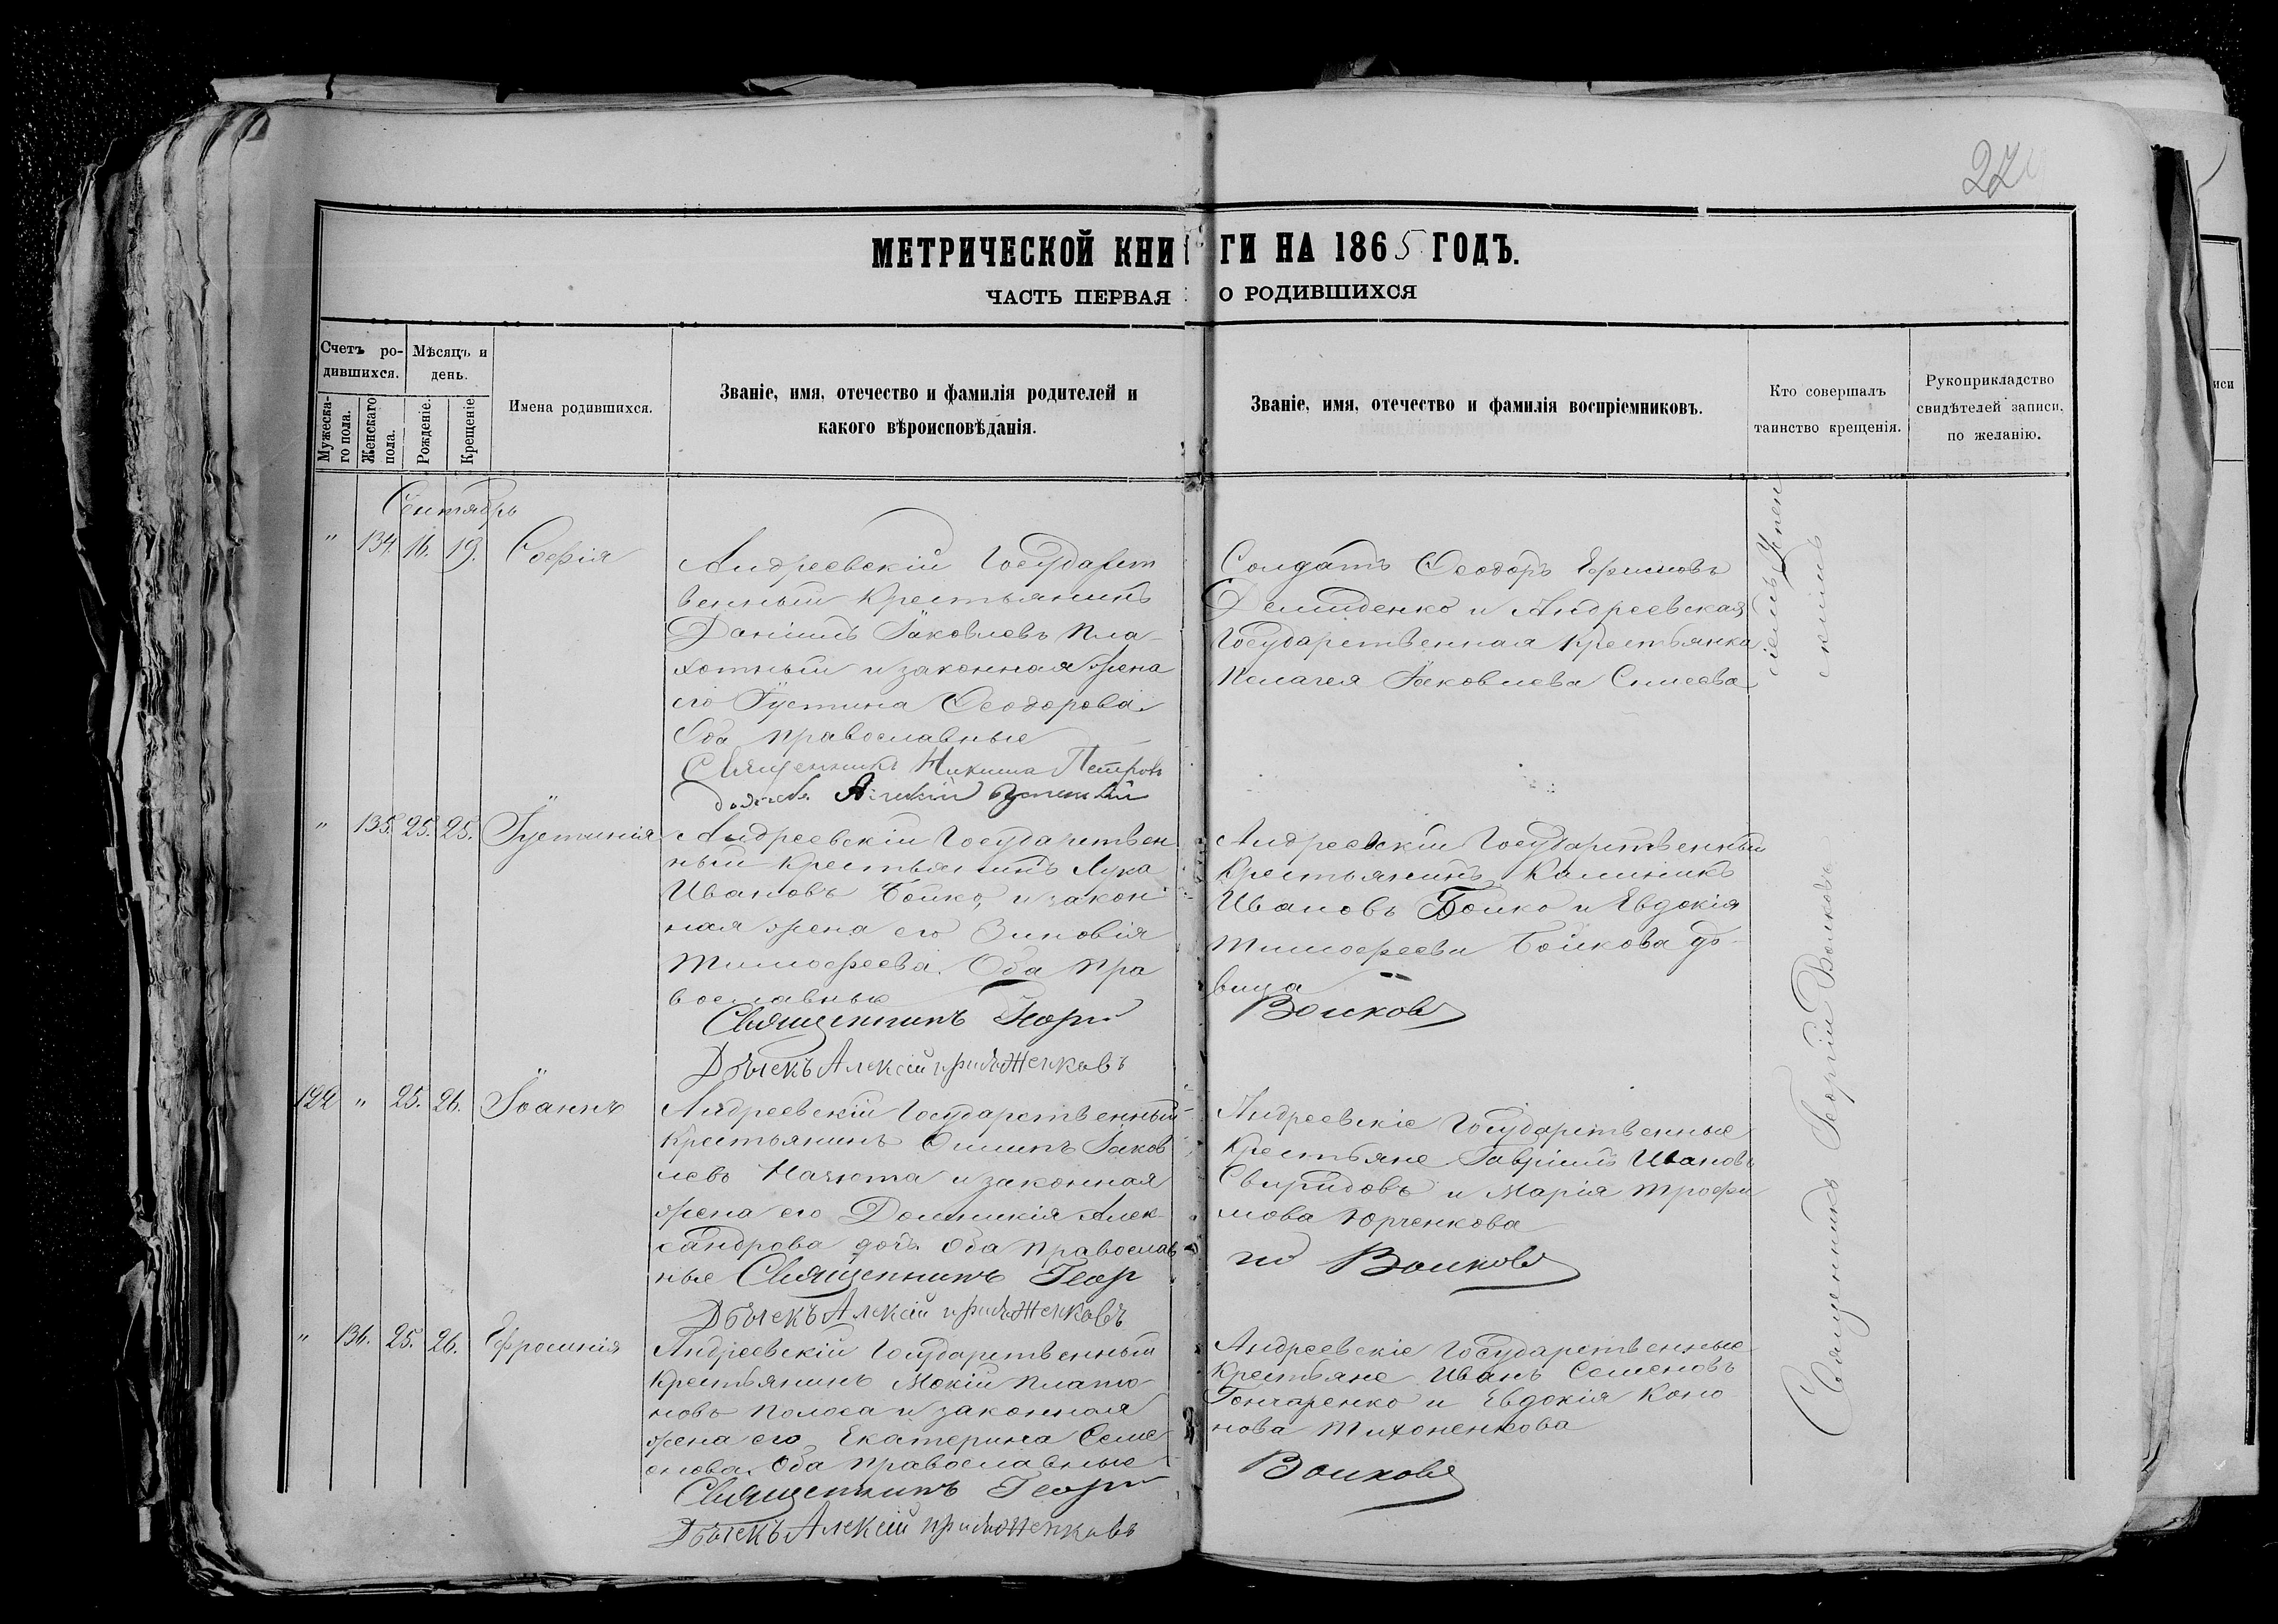 270
МЕТРИЧЕСКОЙ КНИГИ НА 1865 ГОДЪ.
ЧАСТЬ ПЕРВАЯ О РОДИВШИХСЯ
Счетъ ро-
дившихся.
Мѣсяцъ и
день.
Мужеска-
го пола.
Женскаго
пола.
Рожденіе.
Крещеніе.
Имена родившихся.
Званіе, имя, отечество и фамилія родителей и
какого вѣроисповѣданія.
Званіе, имя, отечество и фамилія воспріемниковъ.
Кто совершалъ
таинство крещенія.
Рукоприкладство
свидѣтелей записи,
по желанію.
Сентябрь
" 134. 16. 19. Софія
Андреевскій Государст
венный Крестьянинъ
Даніилъ Іаковлевъ Пла-
хотный и законная жена
его Іустина Ѳеодорова.
Оба православные
Священникъ Никита Петров
Солдатъ Ѳеодоръ Ефимовъ
Демиденко и Андреевская
Государственная Крестьянка
Пелагея Іаковлева
" 135. 25. 25. Іустинія
Андреевскій Государствен
ный Крестьянинъ Лука
Ивановъ Бойко, и закон
ная жена его Зиновія
Тимофеева. Оба пра
вославные
Священникъ Георгій
Дьячекъ Алексій
Андреевскій Государственный
Крестьянинъ Калиникъ
Ивановъ Бойко и Евдокія
Тимофеева Бойкова дѣ-
вица
Волковъ
122 " 25. 26. Іоаннъ
Андреевскій Государственный
Крестьянинъ Іаков
левъ Начюта и законная
жена его Домникія Алек-
сандрова дочь. Оба православ
ные Священникъ Геор
Дьячекъ Алексій
Андреевскіе Государственные
Крестьяне Гавріилъ Ивановъ
Свиридовъ и Марія Трофи
мова Юрченкова
гій Волковъ
" 136. 25. 26. Ефросинія
Андреевскій Государственный
Крестьянинъ Мокій Плато
новъ Полоса и законная
жена его Екатерина Семе
онова. Оба православные
Священникъ Георгій
Дьячекъ Алексій
Андреевскіе Государственные
Крестьяне Иванъ Семеновъ
Гончаренко и Евдокія Коно
нова Тихоненкова
Волковъ
Священникъ Георгій Волковъ